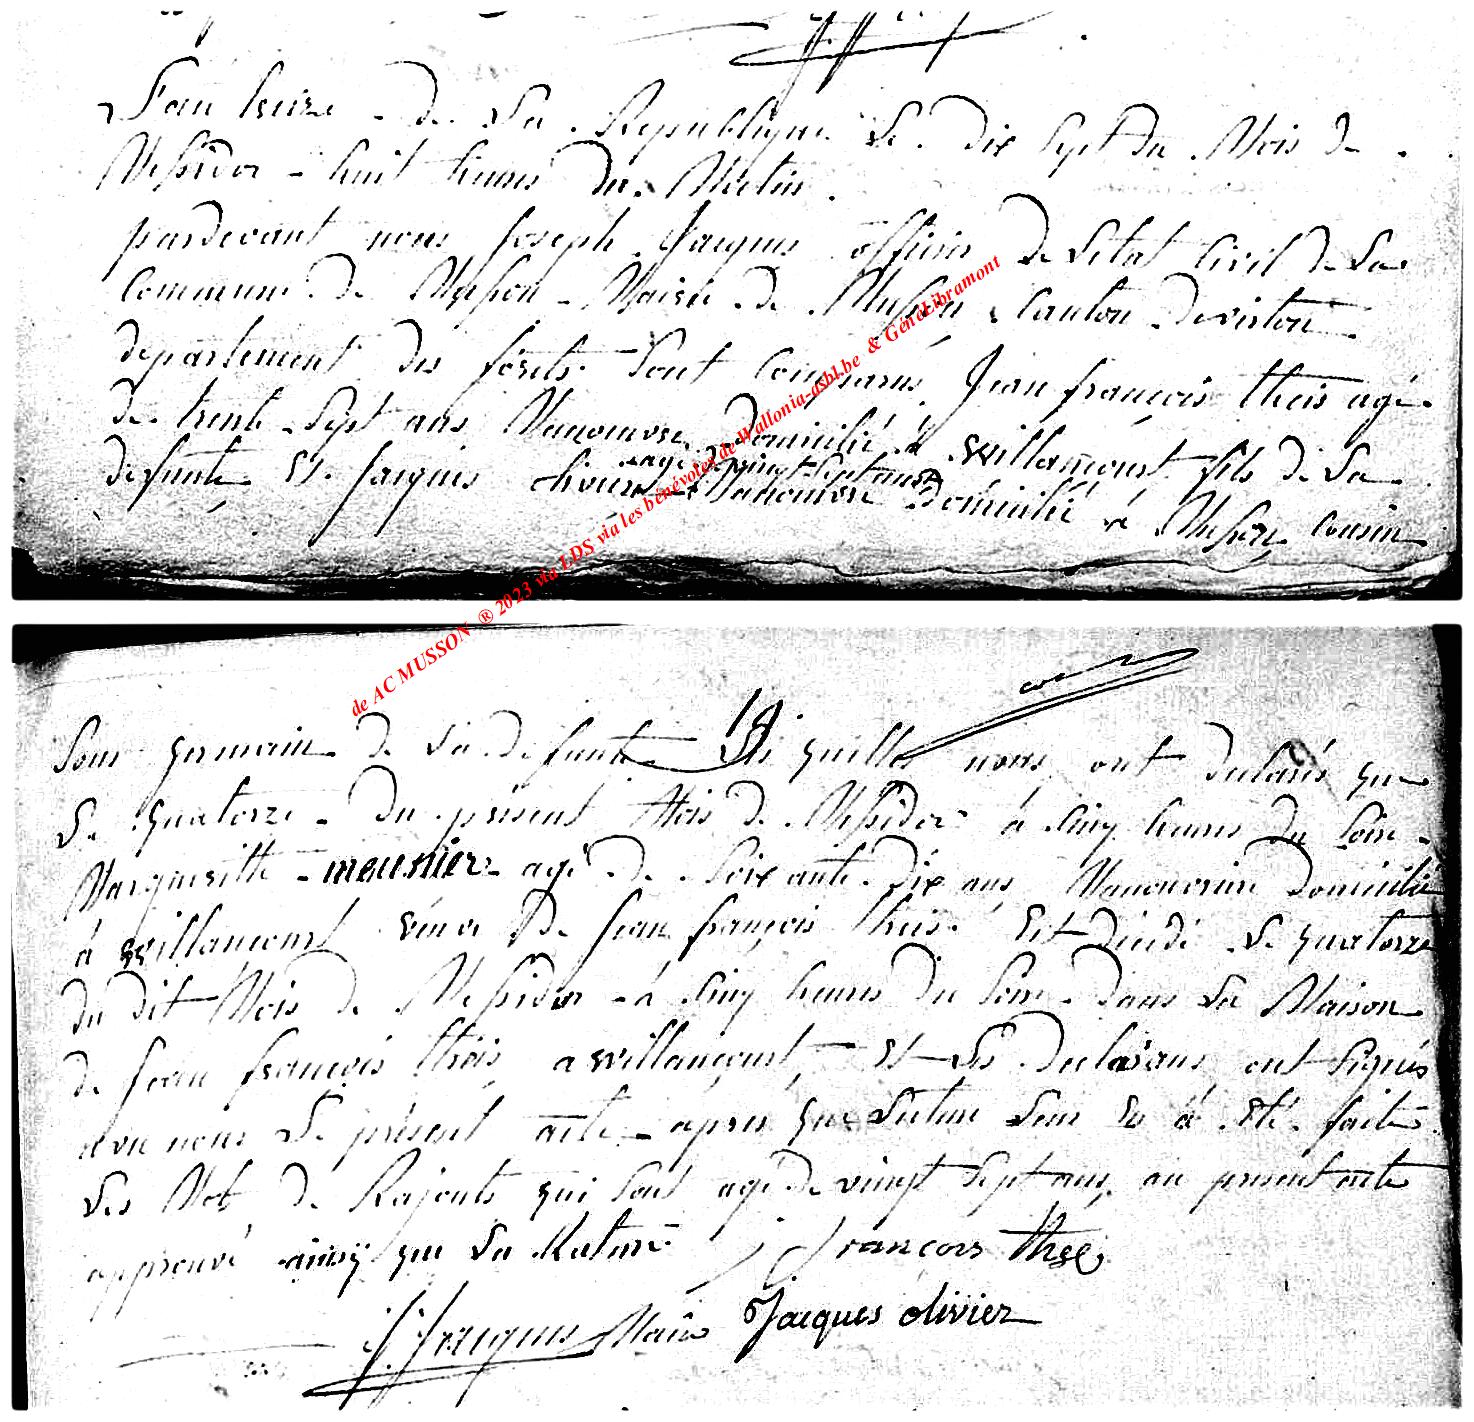 L'an treize de La Republique Le dix Sept du Mois de
Messidor huit heures du Matin
pardevant nous joseph jacques officier de Letat Civil de La
Commune de Musson Mairie de Musson Canton de virton
departement des forêts Sont Comparus Jean françois theis agé
de trente Sept ans Manouvre domicilié à willancourt fils de La
agé de vingt Sept ans
defunte Et jacques olivier Manouvre domicilié à Musson Cousin
Sous germain de La defunte Les quelles nous ont declarés que
Le quatorze du present Mois de Messidor à Cinq heures du Soir
Margueritte meunier agé de Soixante dix ans Manouvrire domicilié
à willancourt veuve De jean françois theis Est décédé Le quatorze
du dit Mois de Messidor à Cinq heures du Soir dans La Maison
de jean françois theis a willancourt Et Les declarans ont Signés
avec nous Le présent acte apres que Lecture Leur En à Eté faite
Les Mots de Rajouts qui Sont agé de vingt Sept ans au present acte
approuvé ainsy que La Rature françois thies
J. Jacques Maire Jacques olivier
de AC MUSSON ® 2023 via LDS via les bénévoles de Wallonia-asbl.be & GénéLibramont